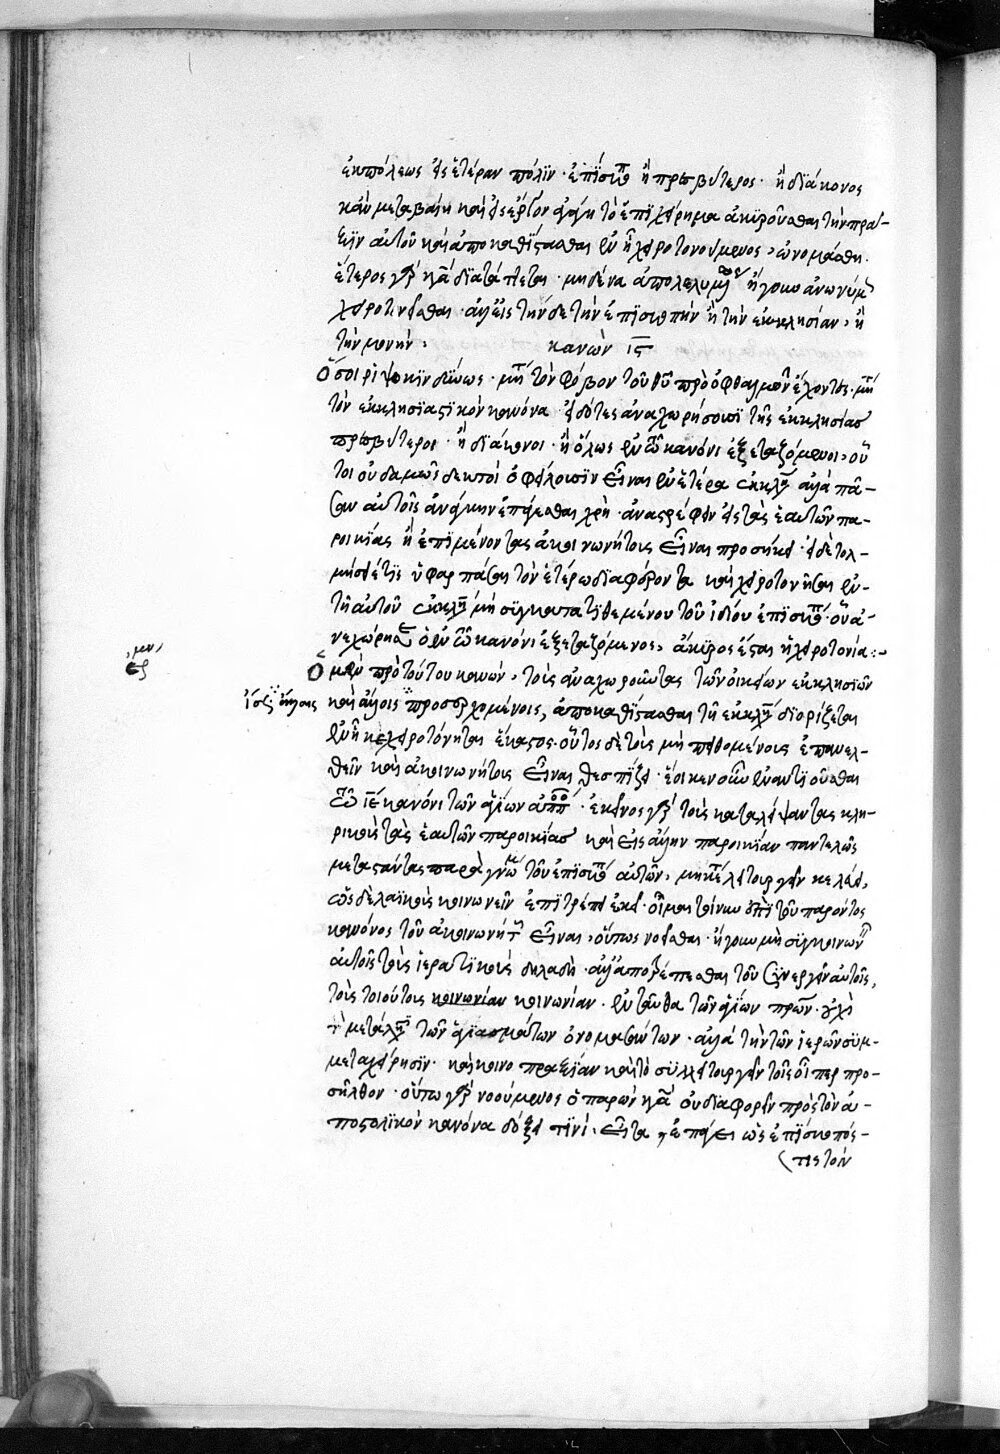 ἐκ πόλεως εἰς ἑτέραν πόλϊν · ἐπΐσκ ἢ πρεσβύτερος · ἢ δϊάκονος
κἂν μεταβαίη καὶ εἰς ἔργον ἀγάγη τὸ ἐπϊχείρημα ἀκϋροῦσθαι τὴν πρᾶ-
ξϊν αὐτοῦ καὶ ἀποκαθΐστασθαι ἐν ἧ χειροτονούμενος, ὠνομάσθη.
ἕτερος γὰρ κα διατάττεται · μηδένα ἀπολελυμένως ἤγουν ἀνωνύμως
χειροτονεῖσθαι · ἀλλ' εἰς τήνδε τὴν ἐπϊσκοπὴν ἢ τὴν ἐκκλησίαν, ἢ
τὴν μονήν. κανὼν ις
Ὅσοι ρϊψοκϊνδύνως · μήτε τὸν φόβον τοῦ θῦ πρὸ ὀφθαλμῶν ἔχοντες · μήτε
τὸν ἐκκλησϊαστϊκὸν κανόνα εἰδότες ἀναχωρήσουσϊ τῆς ἐκκλησίας
πρεσβύτεροι · ἢ διάκονοι · ἢ ὅλως ἐν τῶ κανόνι ἐξεταζόμενοι, οὗ-
τοι οὐδαμῶς δεκτοὶ ὀφείλουσϊν εἶναι ἐν ἑτέρα ἐκκλη ἀλλὰ πᾶ-
σαν αὐτοῖς ἀνάγκην ἐπάγεσθαι χρὴ · ἀναστρέφειν εἰς τὰς ἑαυτῶν πα-
ροικίας ἢ ἐπιμένοντας ἀκοινωνήτους εἶναι προσήκει · εἰ δὲ τολ-
μήσειέ τϊς ὑφαρπάσαι τὸν ἑτέρω διαφέροντα καὶ χειροτονῆσαι ἐν
τῆ αὐτοῦ ἐκκλη μὴ σϋγκατατϊθεμένου τοῦ ἰδίου ἐπϊσκ · οὗ ἀ-
νεχώρησεν ὁ ἐν τῶ κανόνι ἐξεταζόμενος, ἄκϋρος ἔσται ἡ χειροτονία :-
Ὁ μὲν πρὸ τούτου κανών, τοὺς ἀναχωροῦντας τῶν οἰκείων ἐκκλησϊῶν
ἰσ ἄλλαις καὶ ἄλλοις προσερχομένους, ἀποκαθΐστασθαι τῆ ἐκκλη διορίζεται
ἐν ἧ κεχειροτόνηται ἕκαστος. οὗτος δὲ τοὺς μὴ πειθομένους ἐπανελ-
θεῖν καὶ ἀκοινωνήτους εἶναι θεσπΐζει · ἔοικεν οὖν ἐναντϊοῦσθαι
τῶ ιε κανόνι τῶν ἁγίων ἀπο · ἐκεῖνος γὰρ τοὺς καταλείψαντας κλη-
ρικοὺς τὰς ἑαυτῶν παροικίας καὶ εἰς ἄλλην παροικίαν παντελῶς
μεταστάντας παρὰ γνώμην τοῦ ἐπϊσκ αὐτῶν, μηκέτι λειτουργεῖν κελεύει,
ὡς δὲ λαϊκοὺς κοινωνεῖν ἐπϊτρέπει ἐκεῖ · οἶμαι τοίνυν ἐπὶ τοῦ παρόντος
κανόνος τοῦ ἀκοινωνήτους εἶναι, οὕπως νοεῖσθαι · ἤγουν μὴ σϋγκοινωνεῖν
αὐτοῖς τοὺς ἱερατϊκοὺς δηλαδὴ · ἀλλ' ἀποτρέπεσθαι τοῦ σϋνεργεῖν αὐτοῖς,
τοὺς τοιούτους κοινωνίαν κοινωνίαν · ἐνταῦθα τῶν ἁγίων πρων · οὐχὶ
τὴν μετάληψιν τῶν ἁγϊασμάτων ὀνομασάντων · ἀλλὰ τὴν τῶν ἱερῶν σϋμ-
μεταχείρησϊν · καὶ κοινοπραξίαν καὶ τὸ σϋλλειτουργεῖν τοῖς οἷπερ προ-
σῆλθον · οὕπω γὰρ νοούμενος ὁ παρὼν κα οὐ διαφορεῖν πρὸς τὸν ἀ-
ποστολϊκὸν κανόνα δόξει τϊνί · εἶτα, ἐπάγει ὡς ἐπΐσκοπός-
τις τὸν